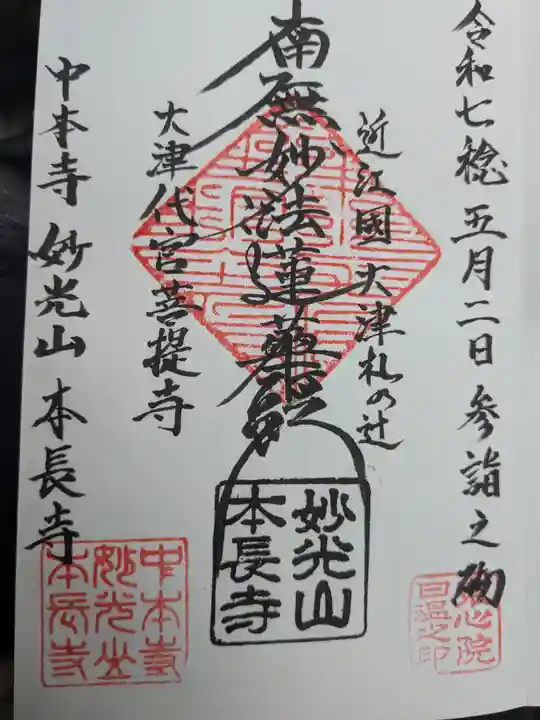 令和七稔五月二日参詣之砌
近江國大津札の辻
南無妙法蓮華経
大津代官菩提寺
中本寺 妙光山 本長寺
妙光山
本長寺
中本寺
妙光山
本長寺
心院
日温之印